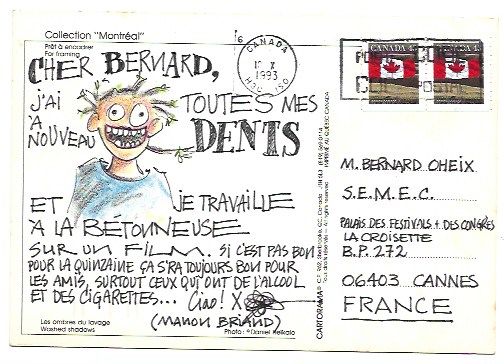 Collection "Montréal"
Prêt à encadrer
For framing
CHER BERNARD,
J'AI TOUTES MES
À NOUVEAU DENTS
ET JE TRAVAILLE
À LA BÉTONNEUSE
SUR UN FILM. SI C'EST PAS BON
POUR LA QUINZAINE ÇA S'RA TOUJOURS BON POUR
LES AMIS, SURTOUT CEUX QUI ONT DE L'ALCOOL
ET DES CIGARETTES... Ciao! X
(MANON BRIAND)
Les ombres du lavage
Washed shadows
Photo: ©Daniel
CANADA
X
1993
CANADA
CANADA
M. BERNARD OHEIX
S.E.M.E.C.
PALAIS DES FESTIVALS + DES CONGRÈS
LA CROISETTE
B.P. 272
06403 CANNES
FRANCE